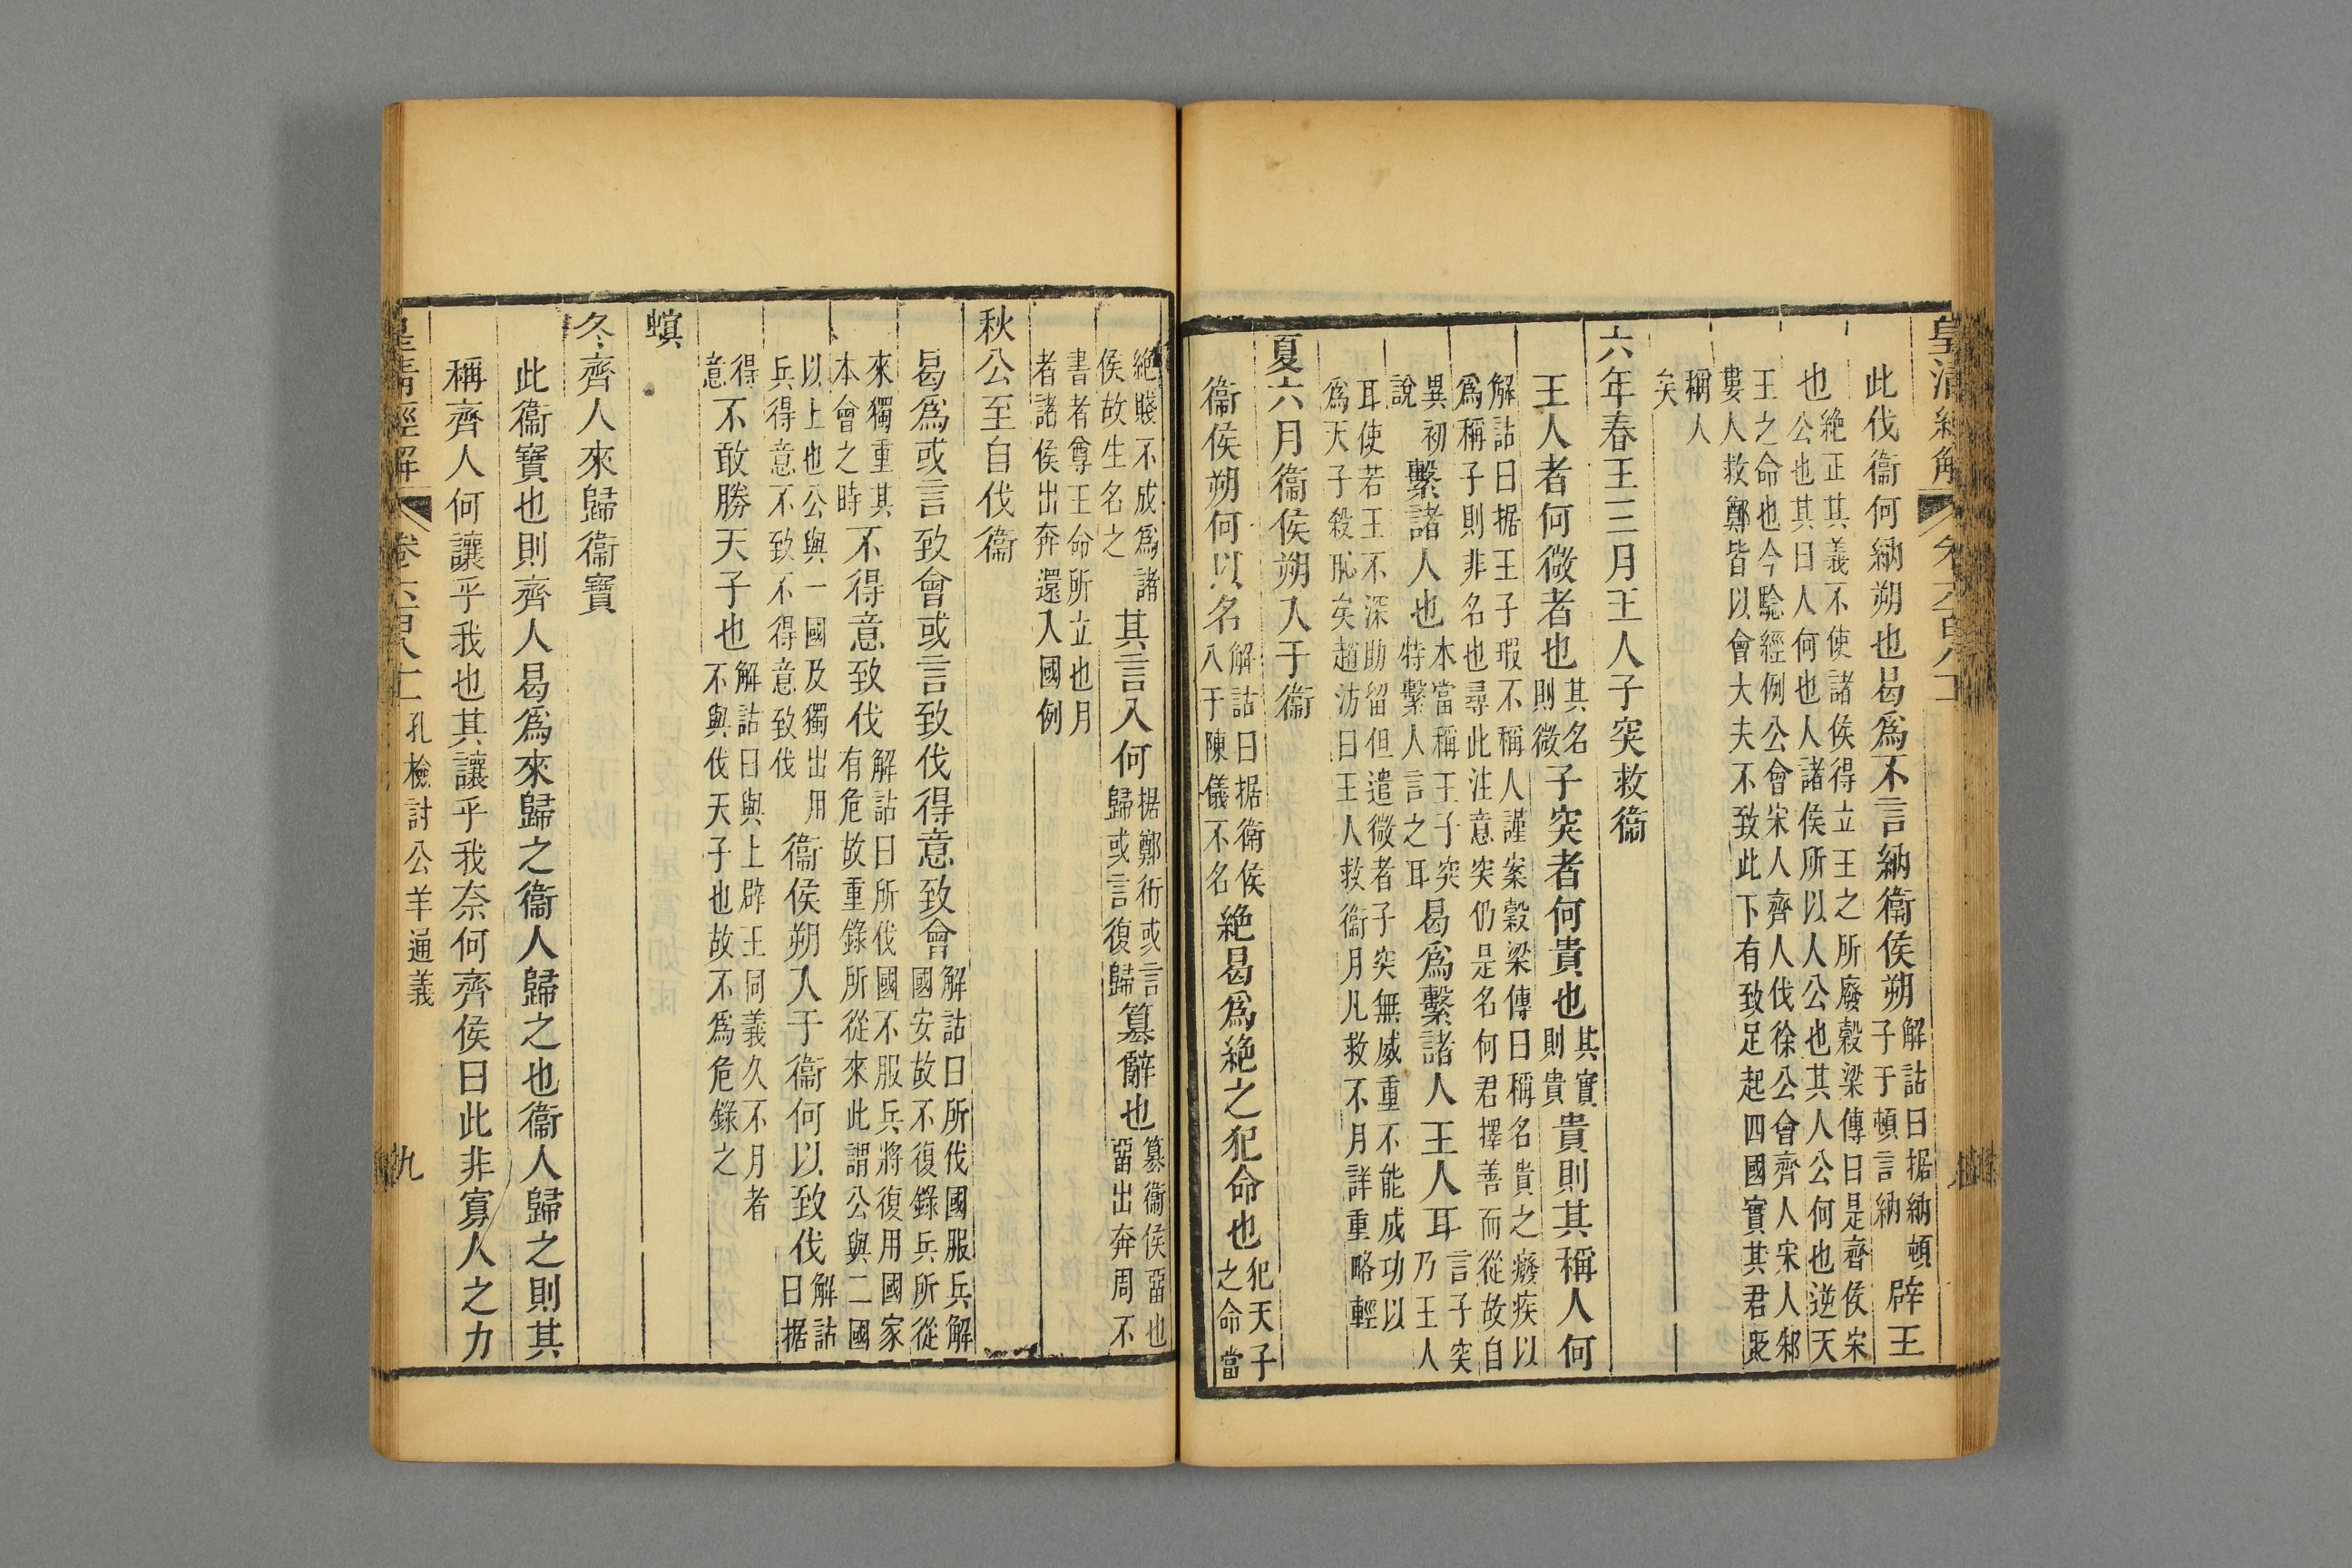 皇清經解 卷六百八十
此伐衞何納朔也曷爲不言納衞侯朔解詁曰据納頓子于頓言納辟王
也絶正其義不使諸侯得立王之所廢穀梁傳曰是齊侯宋公也其曰人何也人諸侯所以人公也其人公何也逆天
王之命也今驗經例公會宋人齊人伐徐公會齊人宋人邾
婁人救鄭皆以會大夫不致此下有致足起四國實其君貶
稱人
矣
六年春王三月王人子突救衞
王人者何微者也其名則微子突者何貴也其實則貴貴則其稱人何
解詁曰据王子瑕不稱人謹案穀梁傳曰稱名貴之癈疾以
爲稱子則非名也尋此注意突仍是名何君擇善而從故自
異初說繫諸人也本當稱王子突特繫人言之耳曷爲繫諸人王人耳言子突乃王人
耳使若王不深助留但遣微者子突無威重不能成功以
爲天子殺恥矣趙汸曰王人救衞月凡救不月詳重略輕
夏六月衞侯朔入于衞
衞侯朔何以名解詁曰据衛侯入于陳儀不名絶曷爲絶之犯命也犯天子之命當
絶賤不成爲諸侯故生名之其言入何据鄭術或言歸或言復歸篡辭也篡衞侯畱也畱出奔周不
書者尊王命所立也月
者諸侯出奔還入國例
秋公至自伐衞
曷爲或言致會或言致伐得意致會解詁曰所伐國服兵解國安故不復錄兵所從
來獨重其本會之時不得意致伐解詁曰所伐國不服兵將復用國家有危故重錄所從來此謂公與二國
以上也公與一國及獨出用兵得意不致不得意致伐衞侯朔入于衞何以致伐解詁曰据
得意不敢勝天子也解詁曰與上辟王同義久不月者不與伐天子也故不爲危錄之
螟
冬齊人來歸衞寶
此衞寶也則齊人曷爲來歸之衞人歸之也衞人歸之則其
稱齊人何讓乎我也其讓乎我奈何齊侯曰此非寡人之力
皇清經解 卷六百八十二 孔檢討公羊通義 九